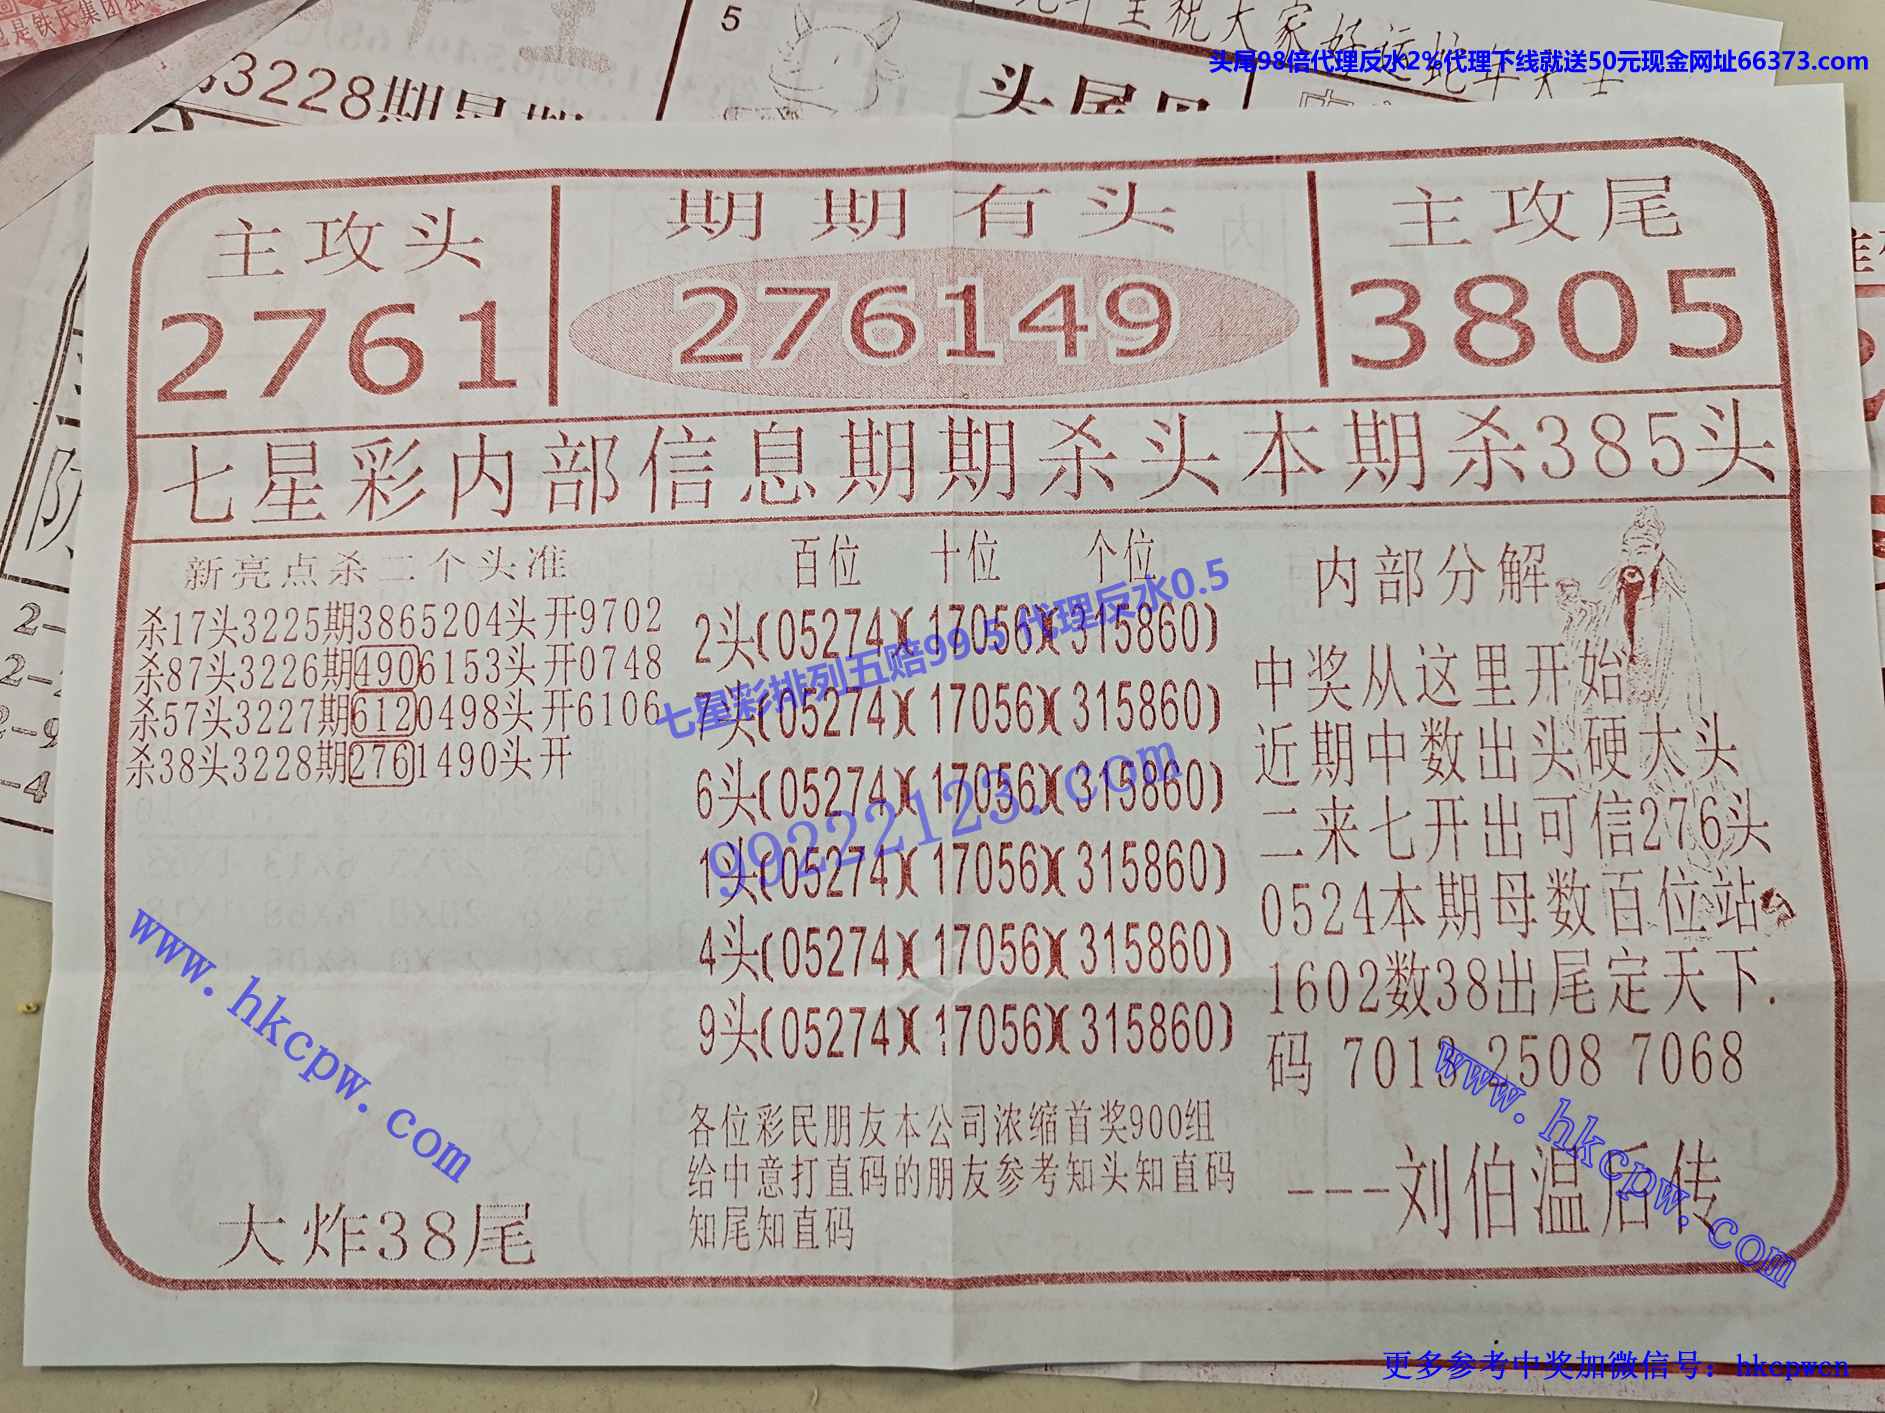 头尾98倍代理反水2%代理下线就送50元现金网址66373.com
5
3228期星期
主攻头
2761
期期有头
276149
主攻尾
3805
七星彩内部信息期期杀头本期杀385头
新亮点杀二个头准
杀17头3225期3865204头开9702
杀87头3226期4906153头开0748
杀57头3227期6120498头开6106
杀38头3228期2761490头开
大炸38尾
百位 十位 个位
2头(05274)(17056)(315860)
7头(05274)(17056)(315860)
6头(05274)(17056)(315860)
1头(05274)(17056)(315860)
4头(05274)(17056)(315860)
9头(05274)(17056)(315860)
各位彩民朋友本公司浓缩首奖900组
给中意打直码的朋友参考知头知直码
知尾知直码
内部分解
中奖从这里开始
近期中数出头硬太头
二来七开出可信276头
0524本期母数百位站
1602数38出尾定天下.
码 7013 2508 7068
---刘伯温后传
七星彩排列五赔99.5 代理反水0.5
99222123.com
www.hkcpw.com
www.hkcpw.com
更多参考中奖加微信号：hkcpwcn